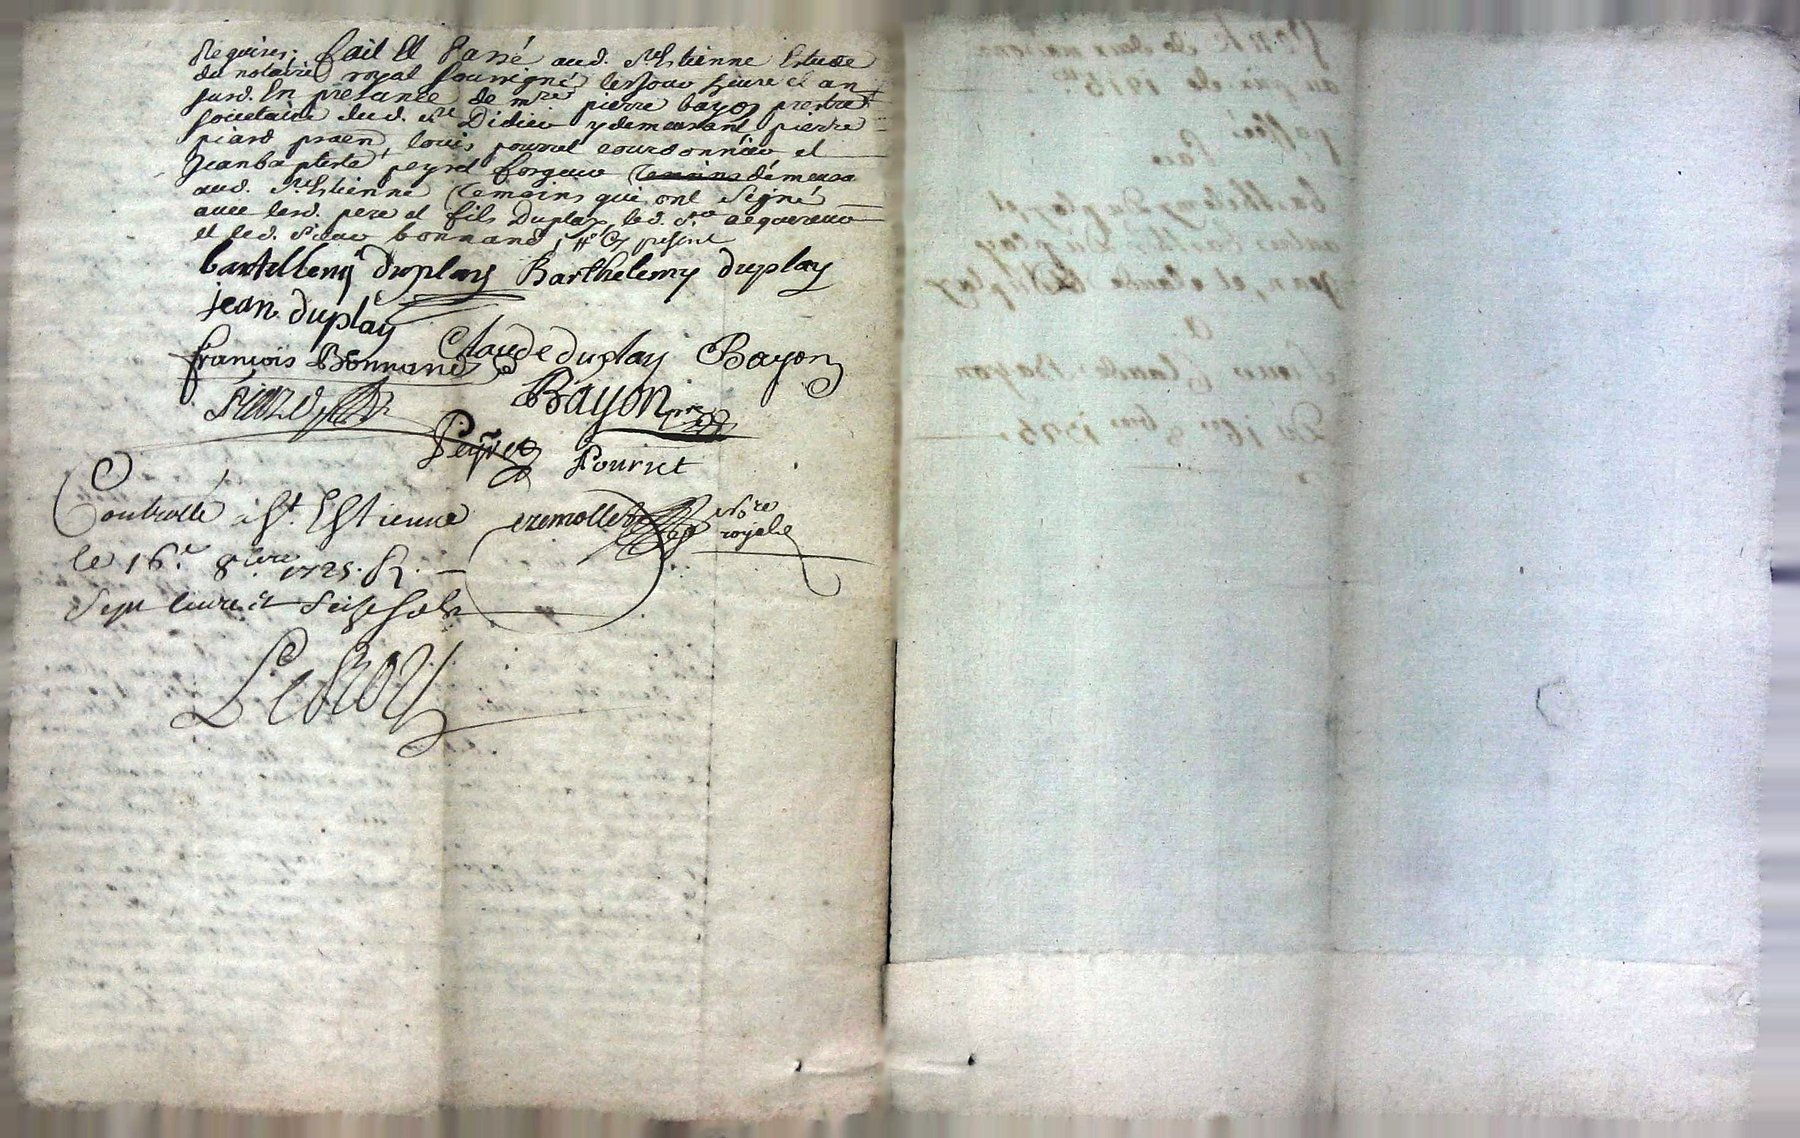 Requires, fait Et Passé aud. St Estienne Estude
du notaire royal soussigné les jour heure et an
susd. En presance de mre pierre bayon prestre
societaire dud. St Didier y demeurant, pierre
piard praen, louis pourret cordonnier et
Jean baptiste peyret forgeur temoins demeura
aud. St Estienne temoins qui ont signé
avec lesd. pere et fils Duplay, led. sr acquereur
et led. sieur bonnand, cy present
bartellemy duplay Barthelemy duplay
jean duplay
Claude duplay Bayon
françois Bonnand
Piard Bayon pre
Peyret Pourret
Controllé à St. Estienne
le 16e 8bre 1725. R.
Sept livre et seize sols
cremollet nore
royal
LeRoy
Vente de deux maisons
au prix de 1915ll
passée
Par
barthelemy Duplay et
autre barthy Duplay
jean, et claude Duplay
A
sieur Claude Bayon
Du 16e 8bre 1725.